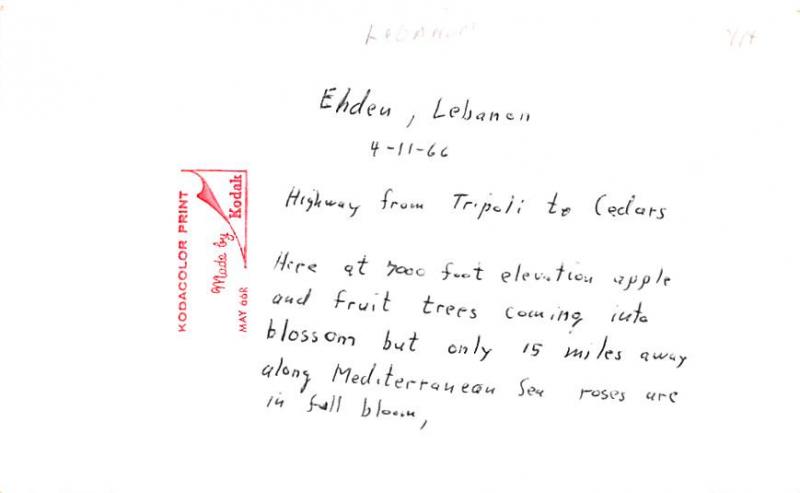 LEBANON
Ehden, Lebanon
4-11-66
Highway from Tripoli to Cedars
Here at 7000 foot elevation apple
and fruit trees coming into
blossom but only 15 miles away
along Mediterranean Sea roses are
in full bloom,
KODACOLOR PRINT
Made by
Kodak
MAY 66R